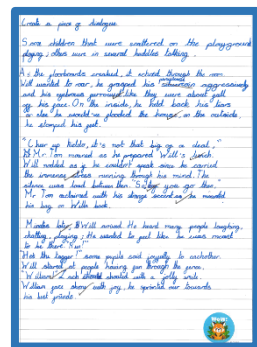 Create a piece of dialogue
Some children that were scattered on the playground
playing; others were in several huddles talking.
As the floorboards creaked, it echoed through the room.
Will wanted to roar, he grasped his aggressively
and his eyebrows like they were about fall
off his face. On the inside, he held back his tears
or else he would've flooded the house, on the outside,
he stomped his foot.
"Cheer up kiddo, it's not that big of a deal,"
Mr Tom moaned as he prepared Will's lunch.
Will nodded as he couldn't speak since he carried
the immense stress running through his mind. The
silence was loud between them. "So you go then."
Mr Tom exclaimed with his strange accent as he
his bag on Wills back.
Minutes later, Will arrived. He heard many people laughing,
chatting, playing; He wanted to feel like he was meant
to be there.
the" some pupils said loyally to eachother.
Will stared at people having fun through the fence.
"William! Zach shouted with a jolly smile.
William face with joy, he sprinted over towards
his best friend.